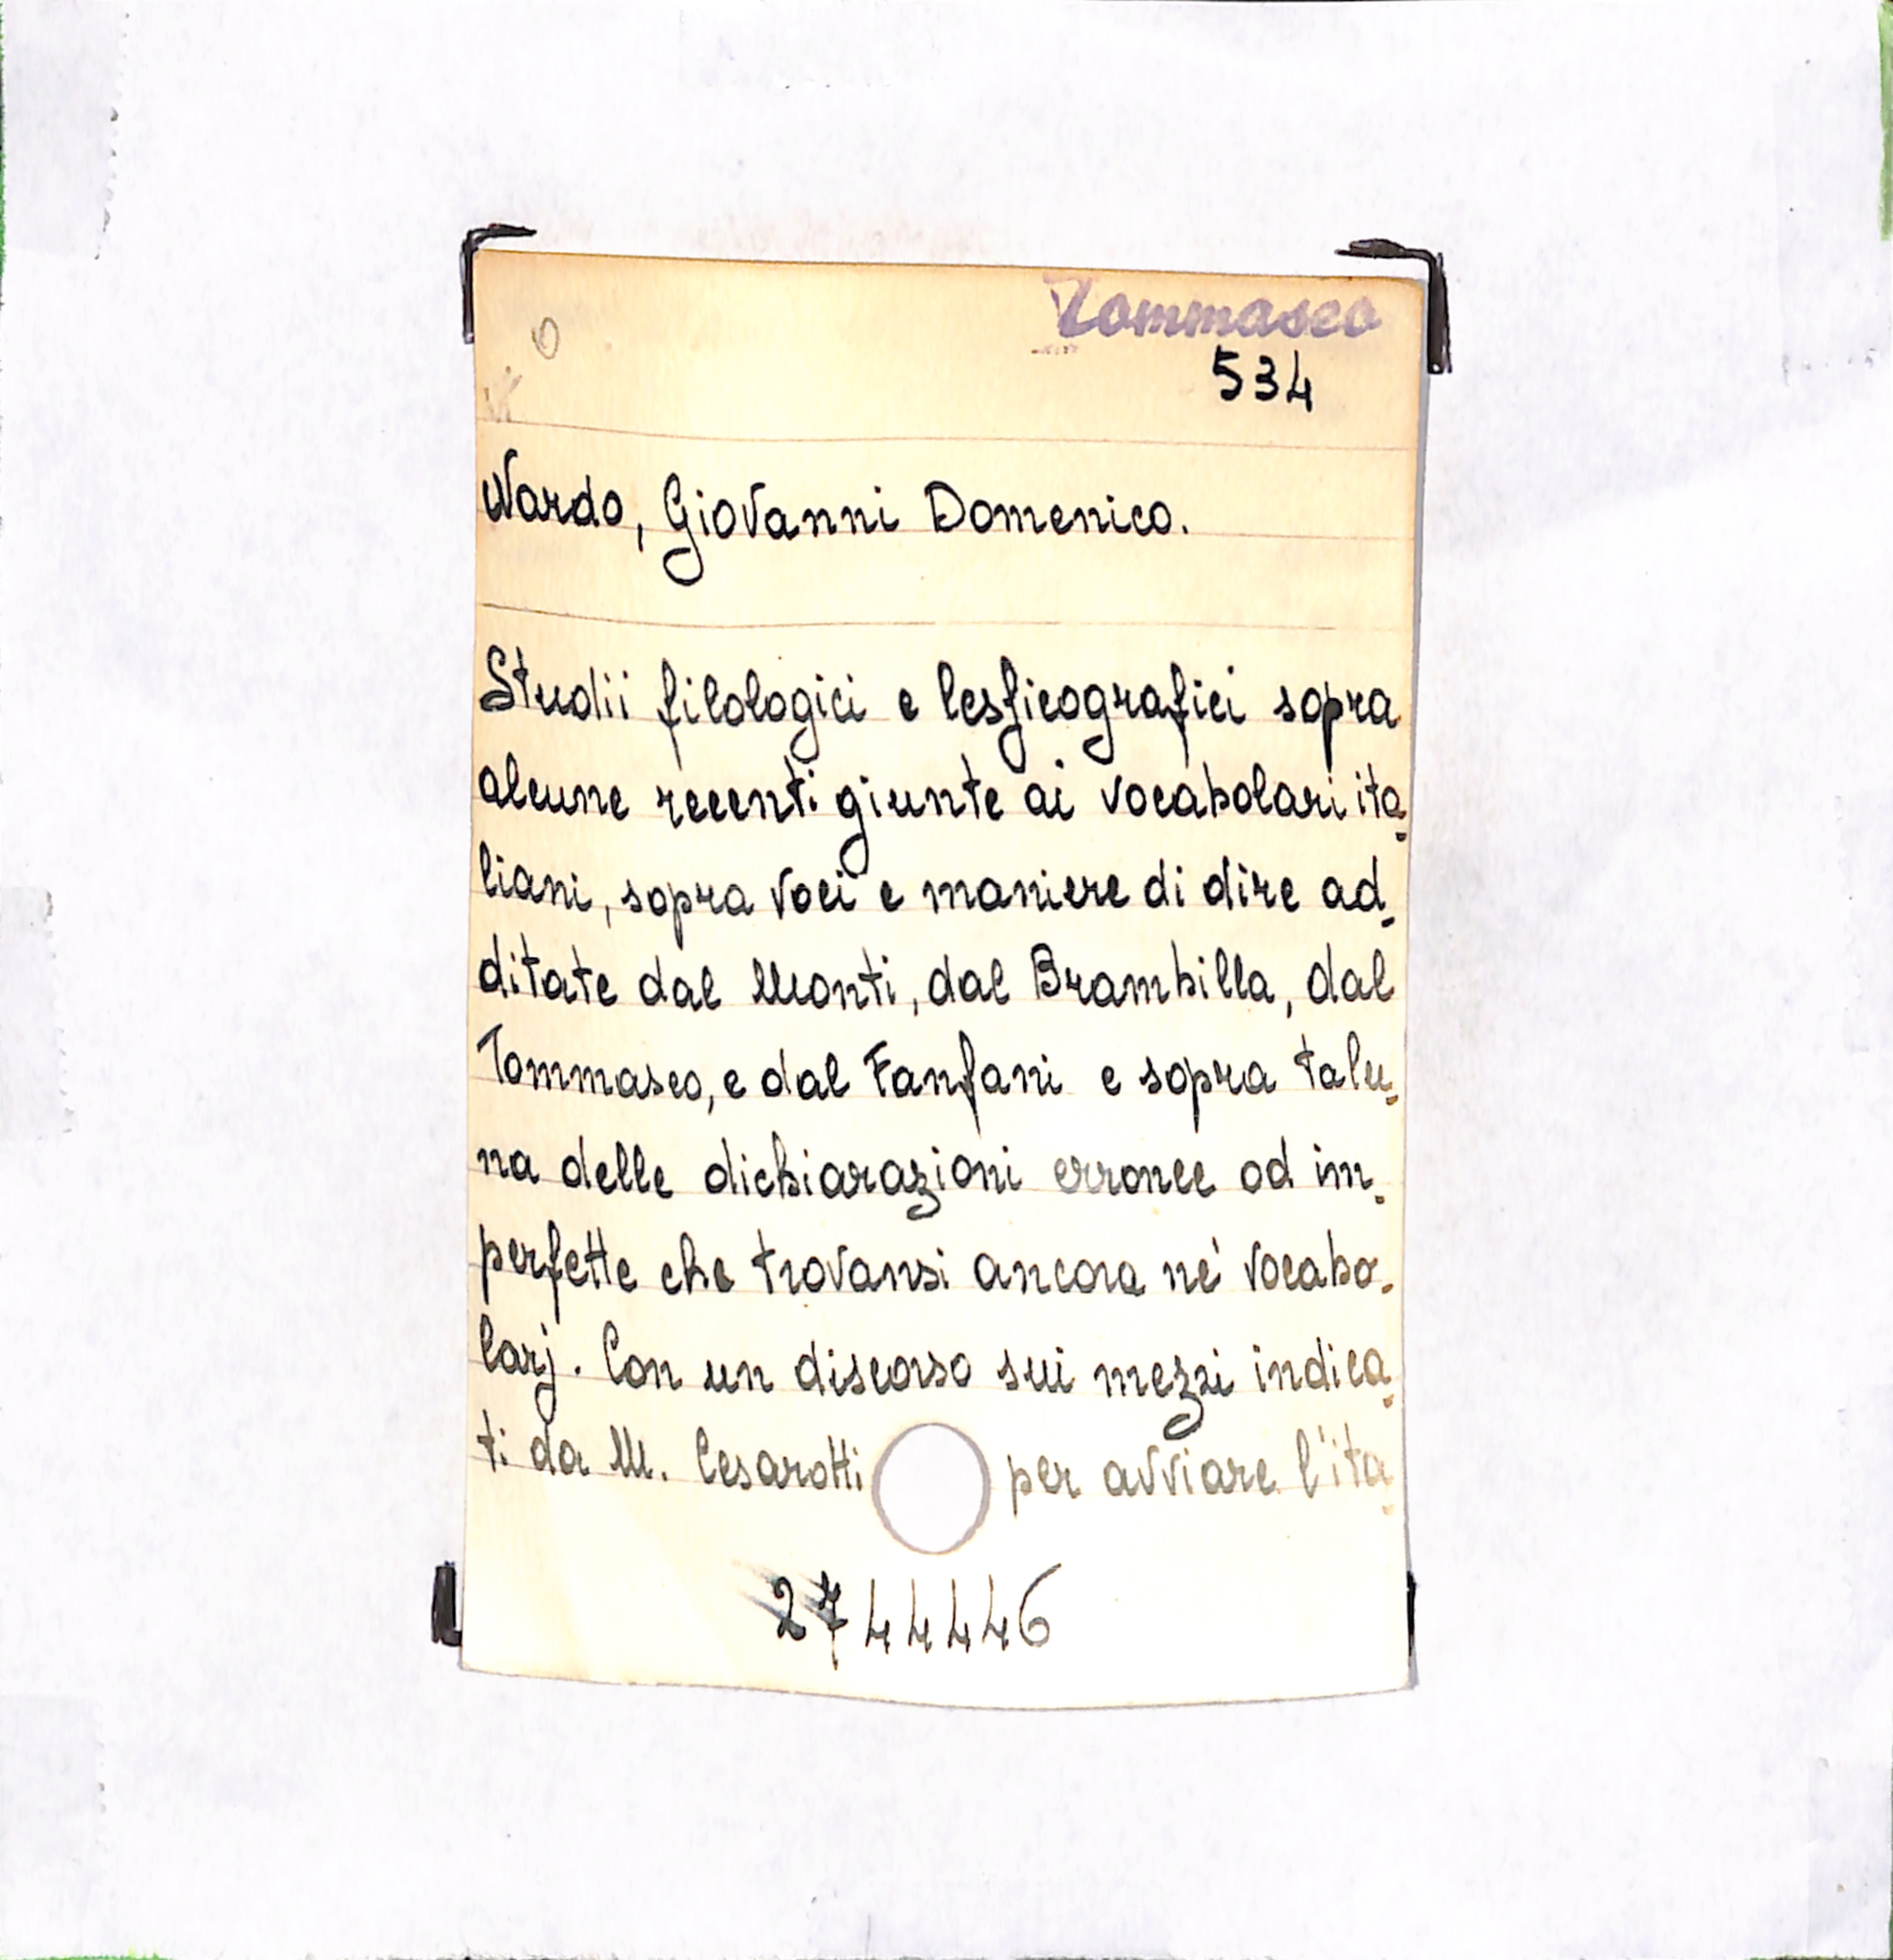 Tommaseo
534
Nardo, Giovanni Domenico.
Studii filologici e lesficografici sopra
alcune recenti giunte ai vocabolari ita-
liani, sopra voci e maniere di dire ad-
ditate dal Monti, dal Brambilla, dal
Tommaseo, e dal Fanfani e sopra talu-
na delle dichiarazioni erronee od im-
perfette che trovansi ancora ne' vocabo-
larj. Con un discorso sui mezzi indica-
ti da M. Cesarotti per avviare l'ita-
2744446